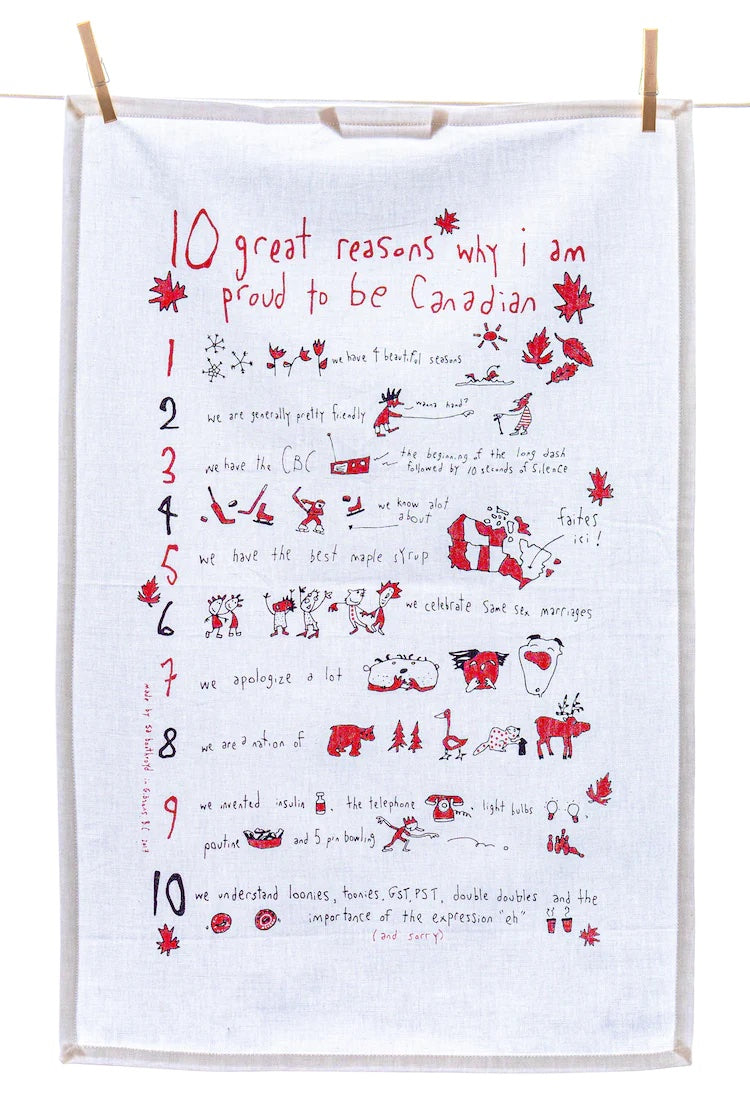 10 great reasons why i am
proud to be Canadian
1 we have 4 beautiful seasons
2 we are generally pretty friendly
wanna hand?
3 we have the CBC
the beginning of the long dash
followed by 10 seconds of silence
4 we know alot
about
faites
ici!
5 we have the best maple syrup
6 we celebrate same sex marriages
7 we apologize a lot
8 we are a nation of
9 we invented insulin, the telephone, light bulbs
poutine and 5 pin bowling
10 we understand loonies, toonies, GST, PST, double doubles and the
importance of the expression "eh"
(and sorry)
made by